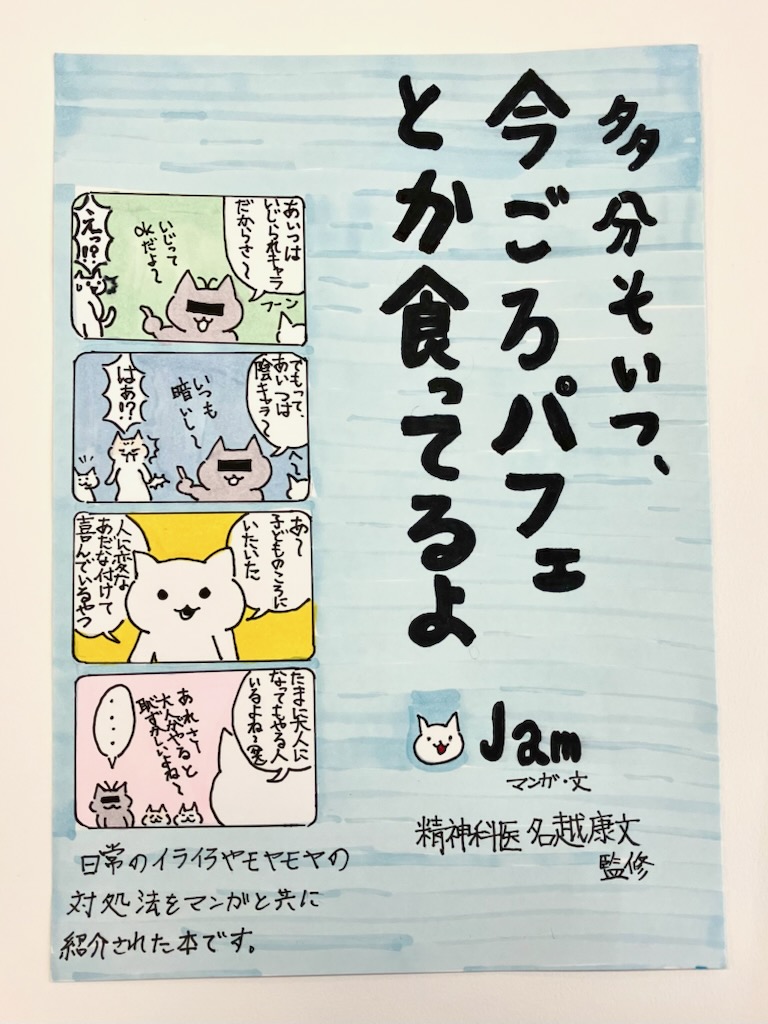 多分そいつ、
今ごろパフェ
とか食ってるよ
Jam
マンガ・文
精神科医 名越康文
監修
あいつは
いじられキャラ
だからさ〜
フーン
いじって
OKだよ〜
えっ!?
でもって、
あいつは
陰キャラ〜
へ〜
いつも
暗いし〜
はぁ!?
あ〜
子どものころに
いたいた
人に変な
あだな付けて
喜んでいるやつ
たまに大人に
なってもやる人
いるよね〜(笑)
あれさー
大人がやると
恥ずかしいよね〜
・・・・
日常のイライラやモヤモヤの
対処法をマンガと共に
紹介された本です。